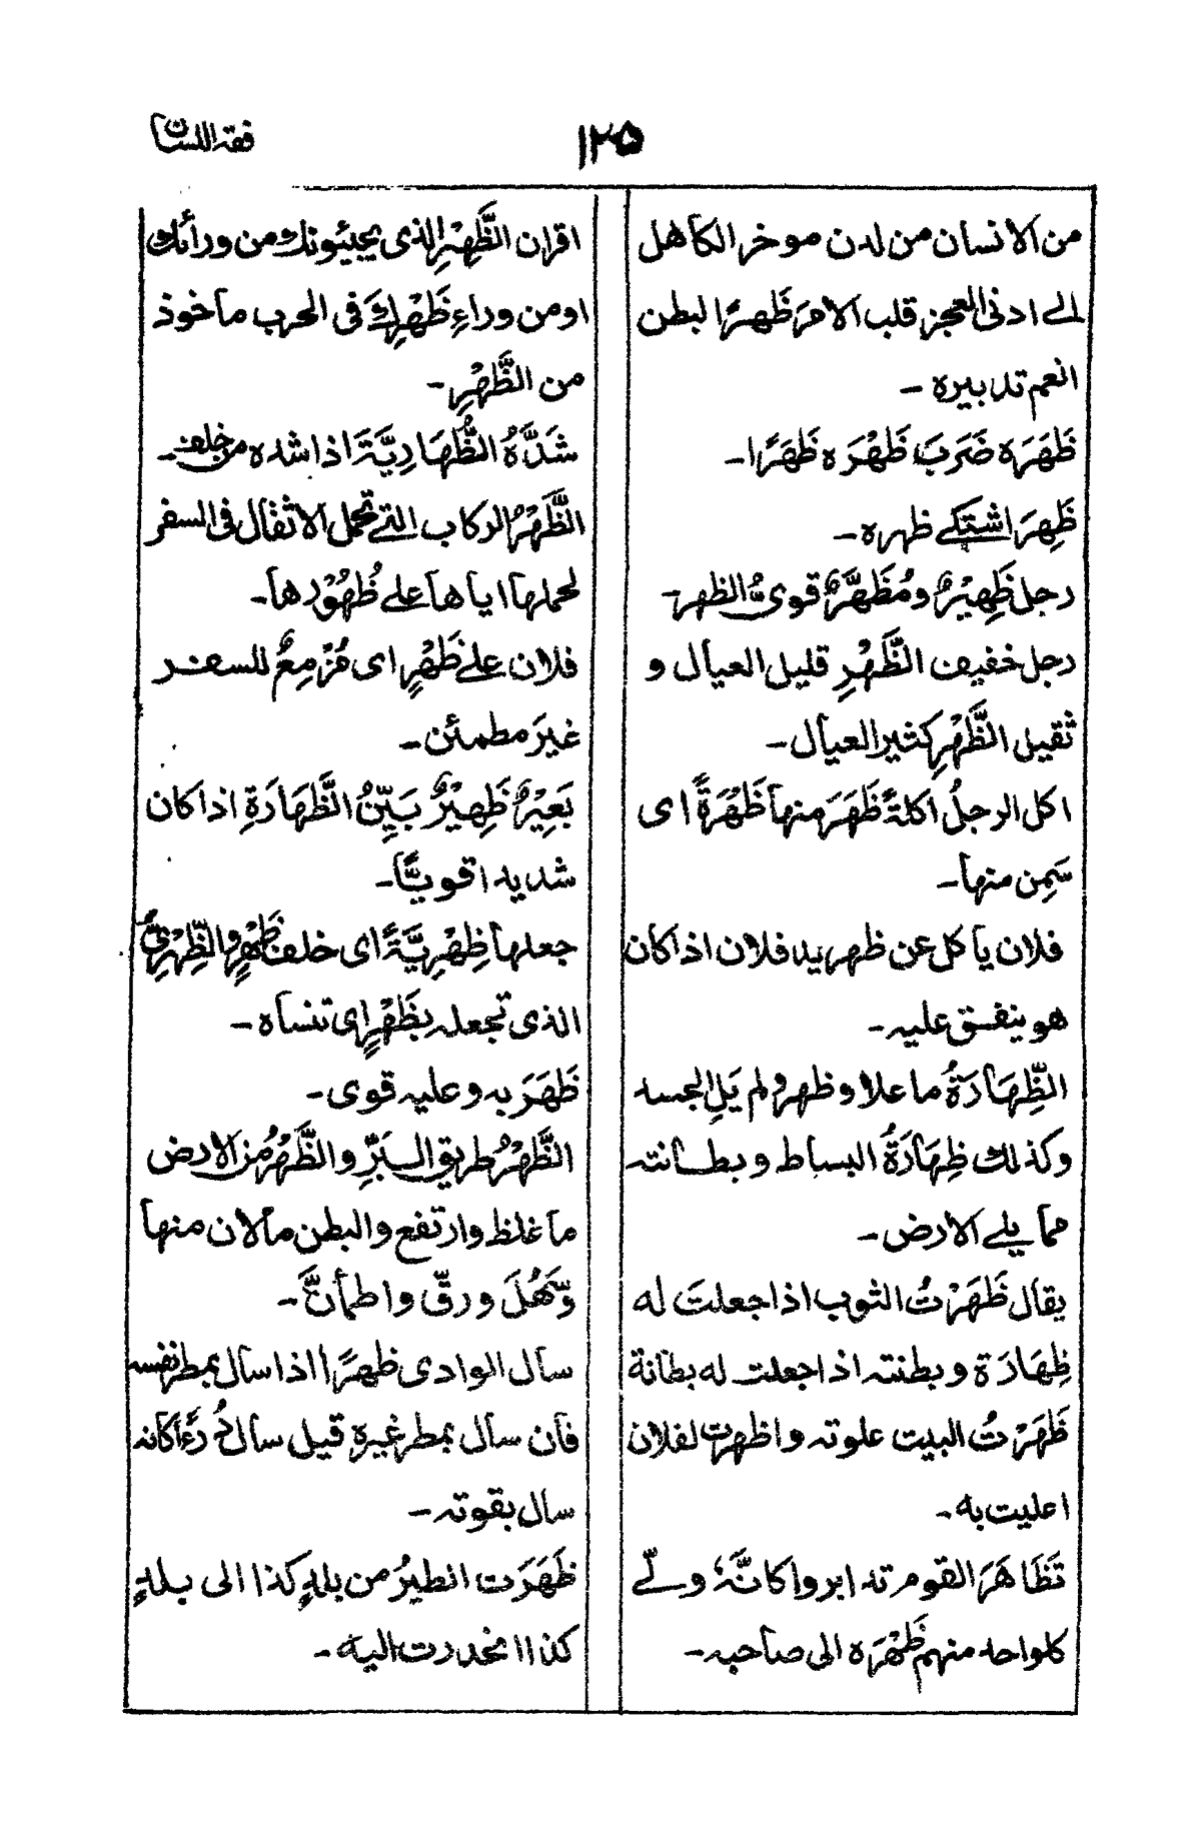 فقه اللسان
١٢٥
من الانسان من لدن موخر الكاهل
الے ادنی العجز قلب الامر ظَهرًا لبطن
انعم تدبيره -
ظَهَرَه ضَرَبَ ظَهْرَه ظَهَرًا -
ظَهِرَ اشتکے ظهره -
رجل ظَهِيْرٌ و مُظَهَّرٌ قوىُّ الظهر -
رجل خفيف الظَّهْرِ قليل العيال و
ثقيل الظَّهْرِ كثير العيال -
اكل الرجلُ اكلةً ظَهَرَ منها ظَهْرَةً اى
سَمِن منها -
فلان ياكل عن ظهر يد فلان اذا كان
هو ينفق عليه -
الظِّهَارَةُ ما علا وظهر ولم يَلِ الجسد
وكذلك ظِهَارَةُ البساط و بطانته
مما يلے الارض -
يقال ظَهَرْتُ الثوب اذا جعلتَ له
ظِهَارَة و بطنته اذا جعلت له بطانة
ظَهَرْتُ البيت علوته و اظهرت لفلان
اعليت به -
تَظَاهَرَ القوم تدابروا كانَّهٗ ولّے
كلواحد منهم ظَهْرَه الى صاحبه -
اقران الظَّهْرِ الذى يجيئونك من ورائك
او من وراءِ ظَهْرِكَ فى الحرب ماخوذ
من الظَّهْرِ -
شَدَّهُ الظُّهَارِيَّةَ اذا شده من خلف -
الظَّهْرُ الركاب التے تحمل الاثقال فى السفر
لحملها اياها علے ظُهُوْرها -
فلان علے ظَهْرٍ اى مُزْمِعٌ للسفر
غيرَ مطمئن -
بَعِيْرٌ ظَهِيْرٌ بَيِّنُ الظَّهَارَةِ اذا كان
شديدا قويًّا -
جعلها ظِهْرِيَّةً اى خلف ظَهْرٍ والظِّهْرِىُّ
الذى تجعله بِظَهْرٍ اى تنساه -
ظَهَرَ به و عليه قوى -
الظَّهْرُ طريق البَرِّ والظَّهْرُ من الارض
ما غلظ وارتفع والبطن مالان منها
وسَهُلَ ورقّ واطمأنَّ -
سال الوادى ظهرًا اذا سال بمطر نفسه
فان سال بمطر غيره قيل سال دُرءًا كانه
سال بقوته -
ظَهَرَت الطيرُ من بلدِ كذا الى بلدِ
كذا انحدرت اليه -